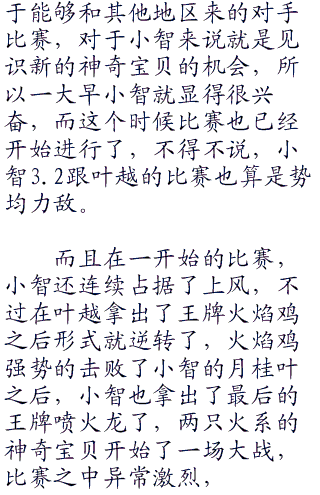 于能够和其他地区来的对手
比赛，对于小智来说就是见
识新的神奇宝贝的机会，所
以一大早小智就显得很兴
奋，而这个时候比赛也已经
开始进行了，不得不说，小
智3.2跟叶越的比赛也算是势
均力敌。
而且在一开始的比赛，
小智还连续占据了上风，不
过在叶越拿出了王牌火焰鸡
之后形式就逆转了，火焰鸡
强势的击败了小智的月桂叶
之后，小智也拿出了最后的
王牌喷火龙了，两只火系的
神奇宝贝开始了一场大战，
比赛之中异常激烈，